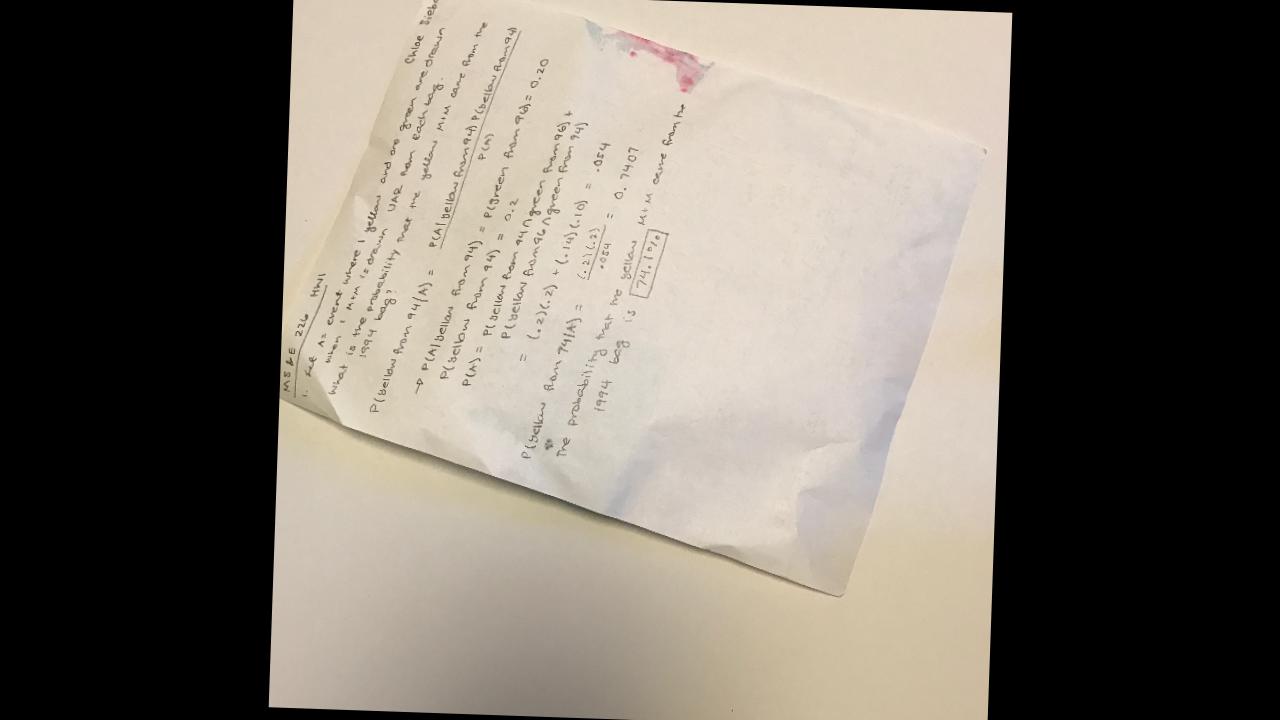 MS & E 226 HW1
Chloe Siebe
1. Let A = event where 1 yellow and one green are drawn
when 1 M+M is drawn UAR from each bag.
What is the probability that the yellow M+M came from the
1994 bag?
P(yellow from 94|A) = P(A|yellow from 94) P(yellow from 94)
P(A)
→ P(A|yellow from 94) = P(green from 96) = 0.20
P(yellow from 94) = 0.2
P(A) = P(yellow from 94 ∩ green from 96) +
P(yellow from 96 ∩ green from 94)
= (.2)(.2) + (.14)(.10) = .054
P(yellow from 94|A) = (.2)(.2) = 0.7407
.054
The probability that the yellow M+M came from the
1994 bag is 74.1%